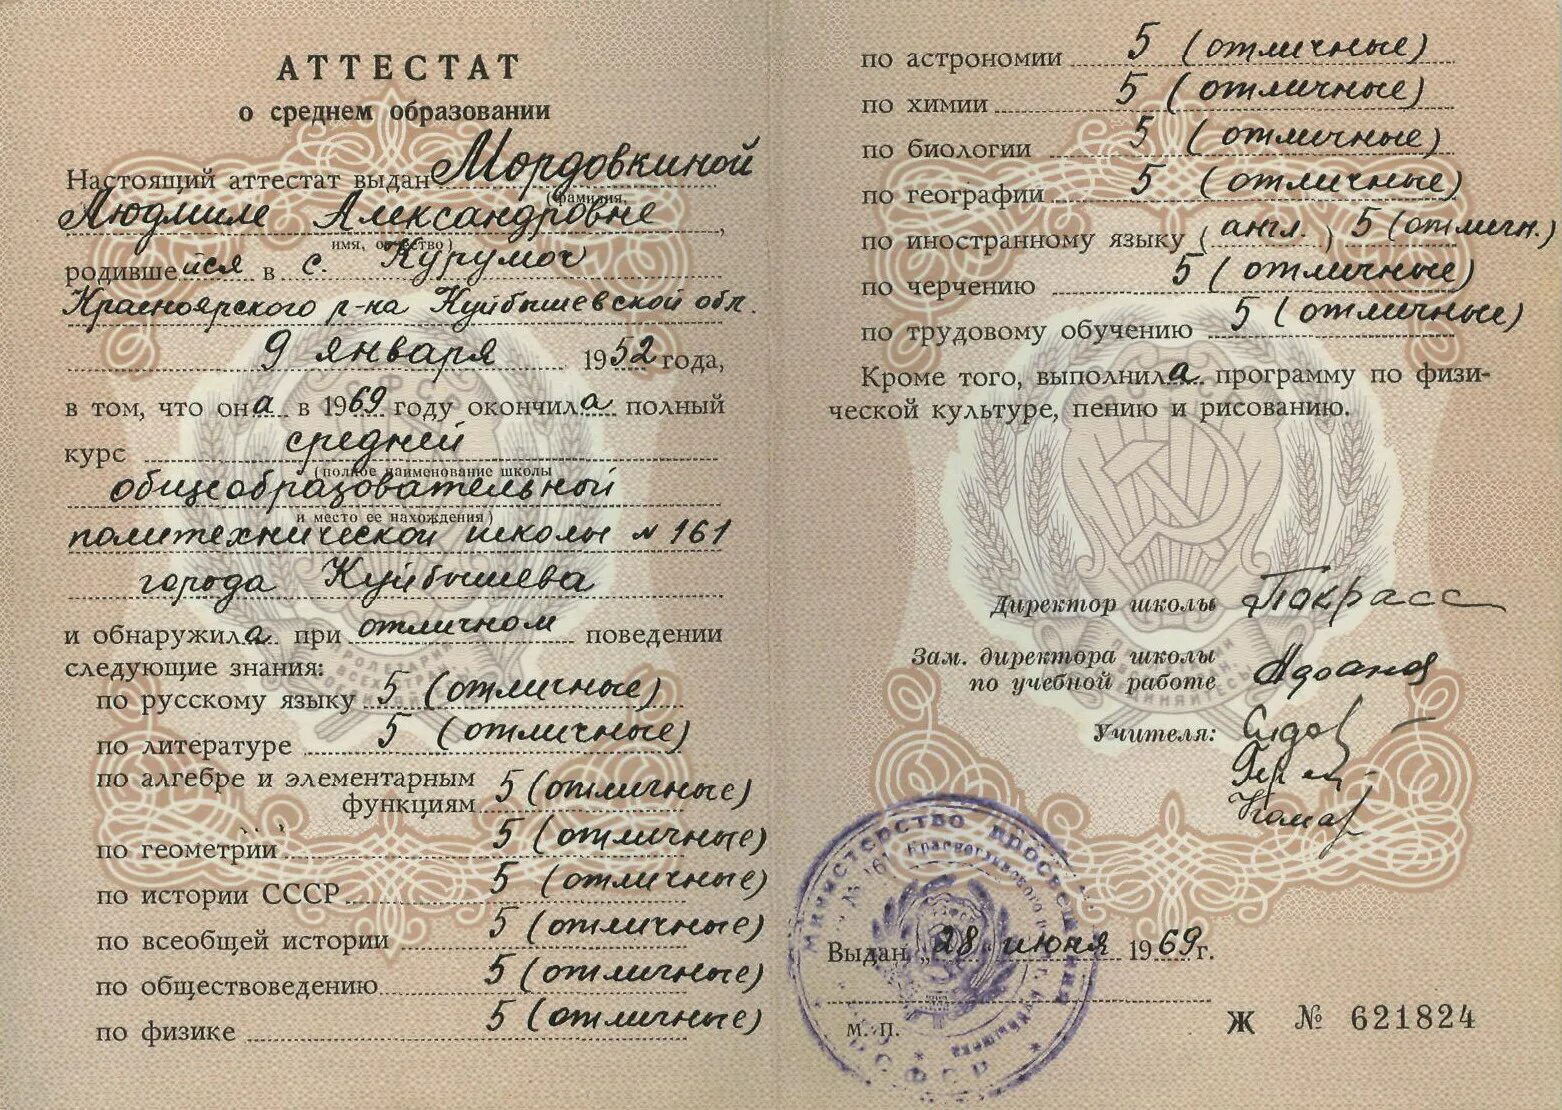 АТТЕСТАТ
о среднем образовании
Настоящий аттестат выдан Мордовкиной
(фамилия,
Людмиле Александровне,
имя, отчество)
родившейся в с. Курумоч
Красноярского р-на Куйбышевской обл.
9 января 1952 года,
в том, что она в 1969 году окончила полный
курс средней
(полное наименование школы
общеобразовательной
и место ее нахождения)
политехнической школы № 161
города Куйбышева
и обнаружила при отличном поведении
следующие знания:
по русскому языку 5 (отличные)
по литературе 5 (отличные)
по алгебре и элементарным
функциям 5 (отличные)
по геометрии 5 (отличные)
по истории СССР 5 (отличные)
по всеобщей истории 5 (отличные)
по обществоведению 5 (отличные)
по физике 5 (отличные)
по астрономии 5 (отличные)
по химии 5 (отличные)
по биологии 5 (отличные)
по географии 5 (отличные)
по иностранному языку (англ.) 5 (отличн.)
по черчению 5 (отличные)
по трудовому обучению 5 (отличные)
Кроме того, выполнила программу по физи-
ческой культуре, пению и рисованию.
Директор школы
Зам. директора школы
по учебной работе
Учителя:
МИНИСТЕРСТВО ПРОСВЕЩЕНИЯ
РСФСР
Выдан „28 июня 1969 г.
М. П.
Ж № 621824